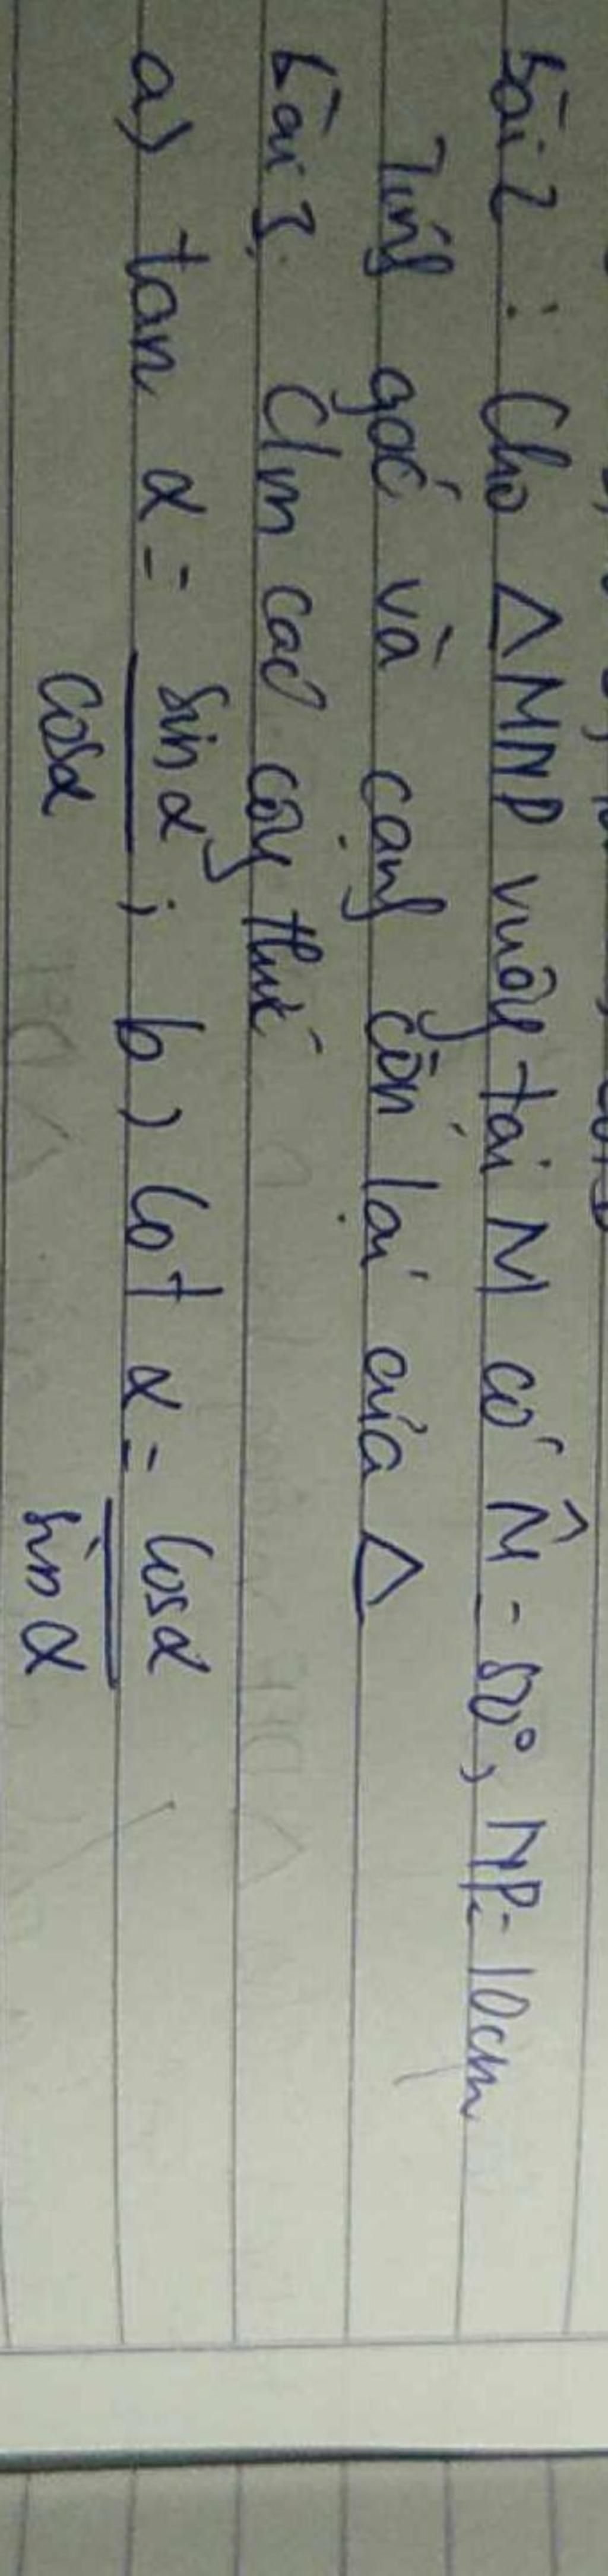 bài 2 : Cho △MNP vuông tại M có M̂ = 50°, NP = 10cm
Tính góc và cạnh còn lại của △
bài 3. C/m các công thức
a) tan α = sin α / cos α ; b) Cot α = Cos α / sin α